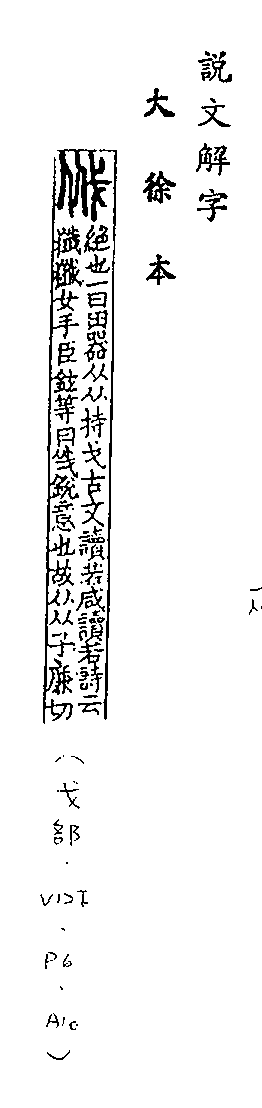 説文解字
大徐本
𢦏 絕也一曰田器从从持戈古文讀若咸讀若詩云
攕攕女手臣鉉等曰𢦏銳意也故从从子廉切
(戈部.V12下.P6.A10)